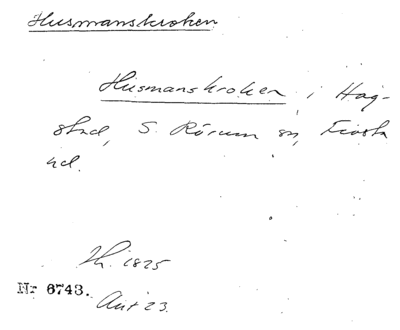 Husmanskroken
Husmanskroken i Hag-
stad, S. Rörum sn, Frosta
hd.
Th. 1825
Nr 6743.
Akt 23.